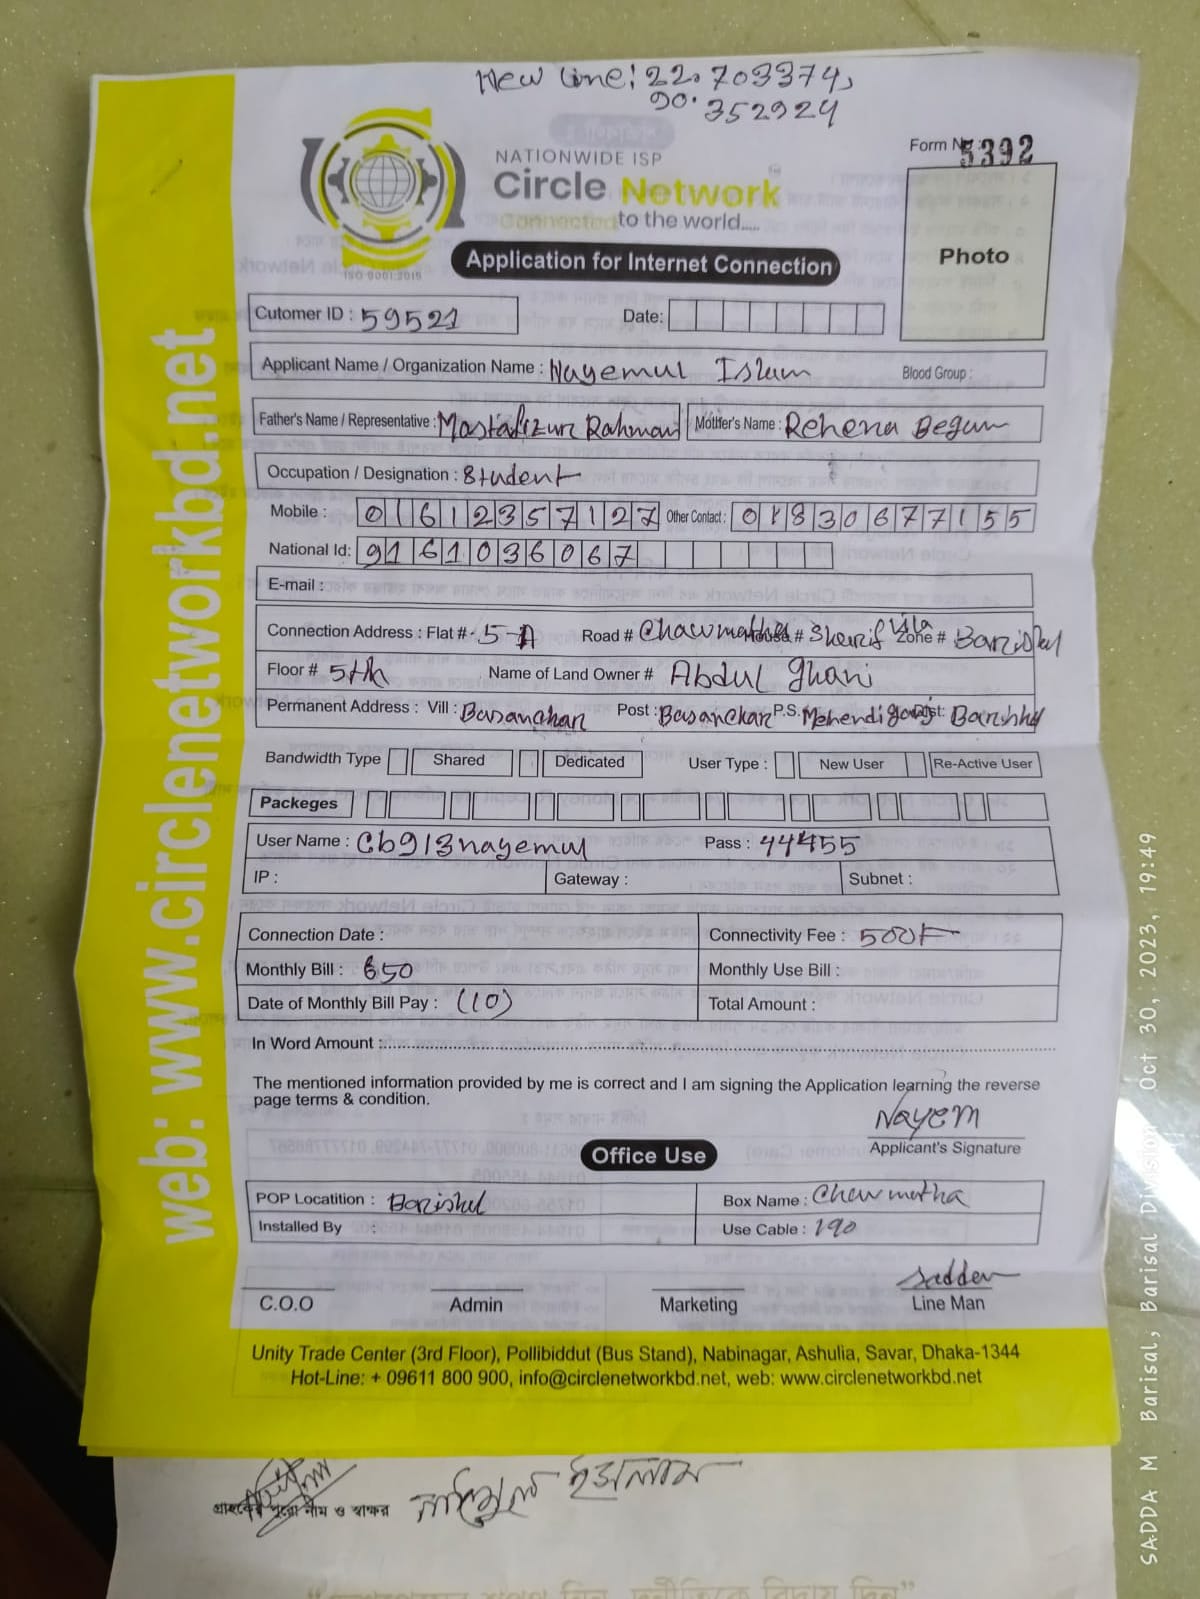 New Line: 22.703374,
90.352924
Form No: 5392
NATIONWIDE ISP
Circle Network
Connected to the world.....
ISO 9001:2015
Photo
Application for Internet Connection
Cutomer ID : 59521 Date:
Applicant Name / Organization Name : Nayemul Islam Blood Group :
Father's Name / Representative : Mostafizur Rahman Mother's Name : Rehena Begum
Occupation / Designation : Student
Mobile : 01612357127 Other Contact : 01830677155
National Id: 9161036067
E-mail :
Connection Address : Flat #- 5-A Road # Chawmatha House # Sharif Vila Zone # Barishal
Floor # 5th Name of Land Owner # Abdul Ghani
Permanent Address : Vill : Basanchar Post : Basanchar P.S. Mehendigonj Dist: Barishal
Bandwidth Type Shared Dedicated User Type : New User Re-Active User
Packeges
User Name : Cb913nayemul Pass : 44455
IP : Gateway : Subnet :
Connection Date : Connectivity Fee : 500
Monthly Bill : 650 Monthly Use Bill :
Date of Monthly Bill Pay : (10) Total Amount :
In Word Amount :
The mentioned information provided by me is correct and I am signing the Application learning the reverse
page terms & condition.
Nayem
Applicant's Signature
Office Use
POP Locatition : Barishal Box Name : Chawmatha
Installed By : Use Cable : 190
Sadden
C.O.O Admin Marketing Line Man
Unity Trade Center (3rd Floor), Pollibiddut (Bus Stand), Nabinagar, Ashulia, Savar, Dhaka-1344
Hot-Line: + 09611 800 900, info@circlenetworkbd.net, web: www.circlenetworkbd.net
web: www.circlenetworkbd.net
গ্রাহকের পুরো নাম ও স্বাক্ষর ইসলাম
SADDA M Barisal, Barisal Division Oct 30, 2023, 19:49